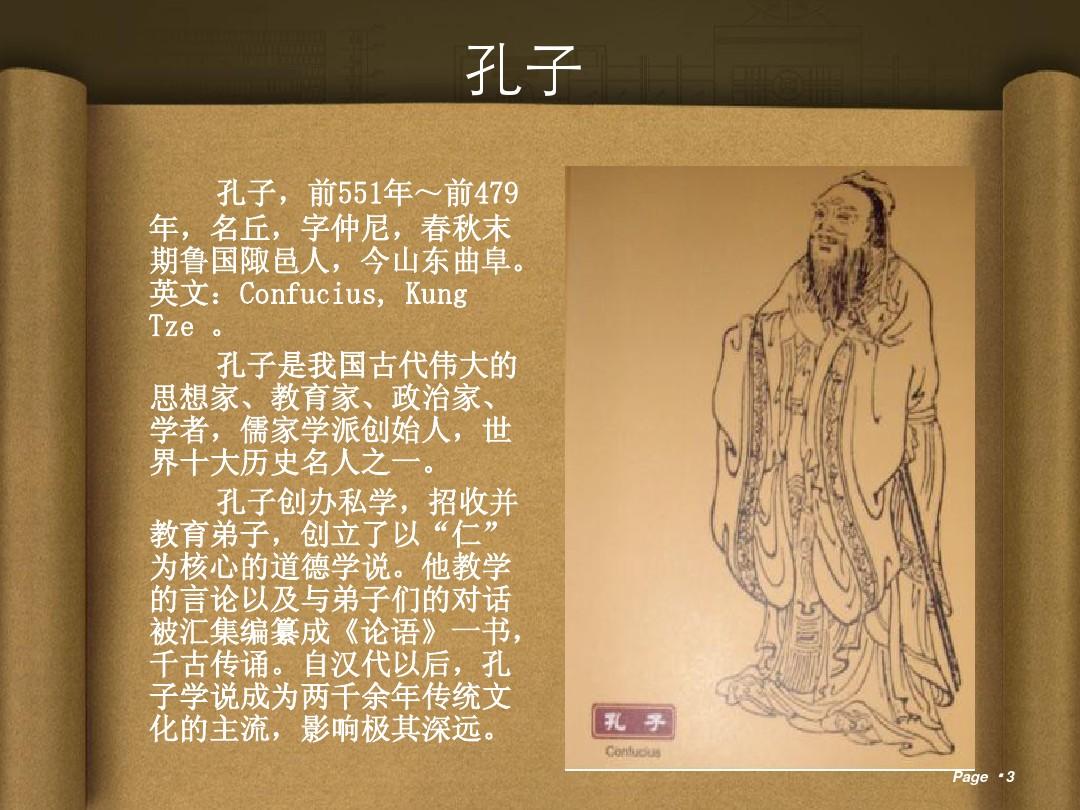 孔子
孔子，前551年～前479
年，名丘，字仲尼，春秋末
期鲁国陬邑人，今山东曲阜。
英文：Confucius, Kung
Tze 。
孔子是我国古代伟大的
思想家、教育家、政治家、
学者，儒家学派创始人，世
界十大历史名人之一。
孔子创办私学，招收并
教育弟子，创立了以“仁”
为核心的道德学说。他教学
的言论以及与弟子们的对话
被汇集编纂成《论语》一书，
千古传诵。自汉代以后，孔
子学说成为两千余年传统文
化的主流，影响极其深远。
孔子
Confucius
Page ▪ 3